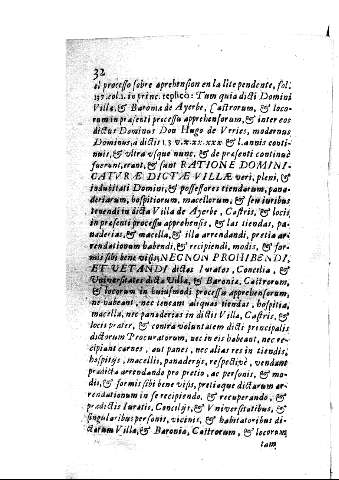 32
el processo sobre aprehension en la lite pendente, fol.
137. col. 2. in princ. replicò: Tum quia dicti Domini
Villæ, & Baroniæ de Ayerbe, Castrorum, & loco-
rum in præsenti processu aprehensorum, & inter eos
dictus Dominus Don Hugo de Vrries, modernus
Dominus, a dictis 1.3. v.x.xx.xxx & l. annis conti-
nuis, & vltra vsque nunc, & de presenti continuè
fuerunt, erant, & sunt RATIONE DOMINI-
CATVRÆ DICTÆ VILLÆ veri, pleni, &
indubitati Domini, & possessores tiendarum, pana-
deriarum, hospitiorum, macellorum, & seu iuribus
tenendi in dicta Villa de Ayerbe, Castris, & locis
in presenti processu aprehensis, & las tiendas, pa-
naderias, & macella, & illa arrendandi, pretia ar-
rendationum habendi, & recipiendi, modis, & for-
mis sibi bene visis, NECNON PROHIBENDI,
ET VETANDI dictas Iuratos, Concilia, &
Vniversitates dicta Villa, & Baronia, Castrorum,
& locorum in huiusmodi processu apprehensorum,
ne habeant, nec teneam aliquas tiendas, hospitia,
macella, nec panaderias in dictis Villa, Castris, &
locis præter, & contra voluntatem dicti principalis
dictorum Procuratorum, nec in eis habeant, nec re-
cipiant carnes, aut panes, nec alias res in tiendis,
hospitijs, macellis, panaderijs, respectivè, vendant
prædicta arrendando pro pretio, ac personis, & mo-
dis, & formis sibi bene visis, pretiaque dictarum ar-
rendationum in se recipiendo, & recuperando, &
prædictis Iuratis, Concilijs, & Vniversitatibus, &
singularibus personis, vicinis, & habitatoribus di-
ctarum Villa, & Baronia, Castrorum, & locorum
tam